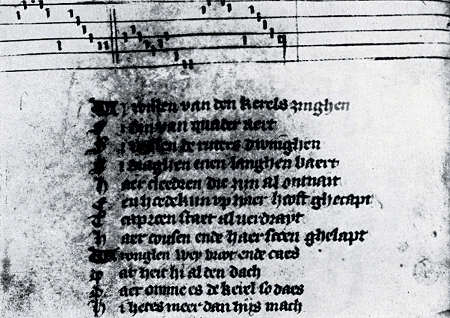 Wi willen van den kerels zinghen
Si sijn van quader aert
Si willen de ruters dwinghen
Si draghen enen langhen baert
Haer cleedren die zijn al ontnait
Een hoedekin up haer hooft ghecapt
Tcaproen staet al verdrayt
Haer cousen ende haer scoen ghelapt
Wronglen wey broot ende caes
Dat heit hi al den dach
Daer omme es de kerel so daes
Hi hetes meer dan hijs mach